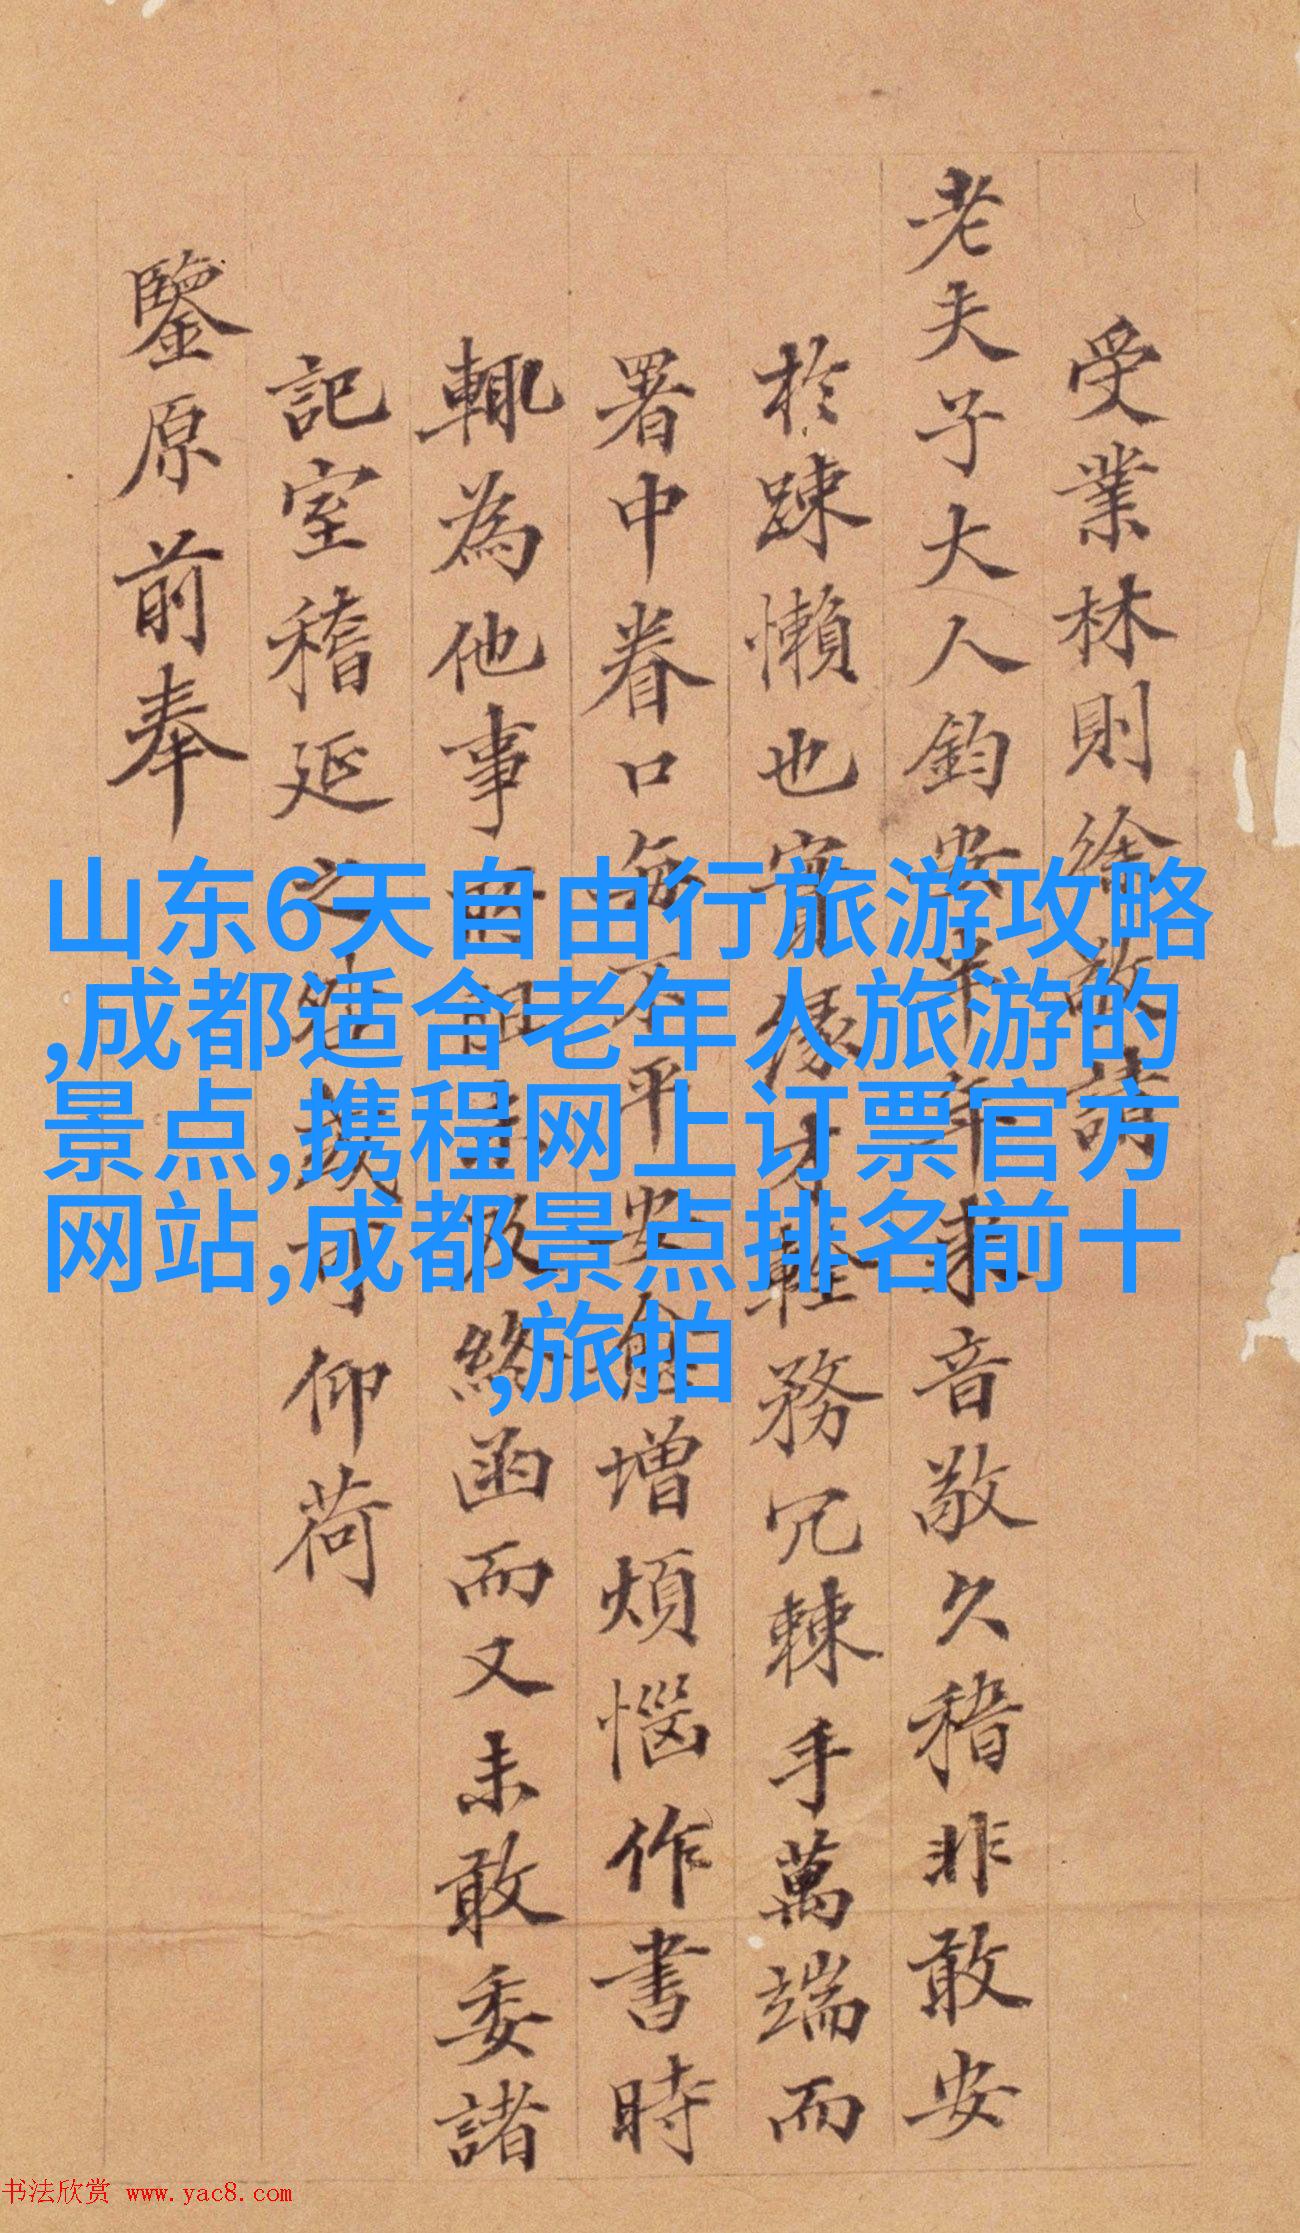 受業林則徐敬請
老夫子大人鈞安半年来音敬久稽非敢安
於踈懶也實緣才輕務冗棘手萬端而
署中眷口每不平安愈增煩惱作書時
輒為他事所阻
終函而又未敢委諸
記室稽延之
可仰荷
鑒原前奉
山东6天自由行旅游攻略
,成都适合老年人旅游的
景点,携程网上订票官方
网站,成都景点排名前十
,旅拍
书法欣赏 www.yac8.com